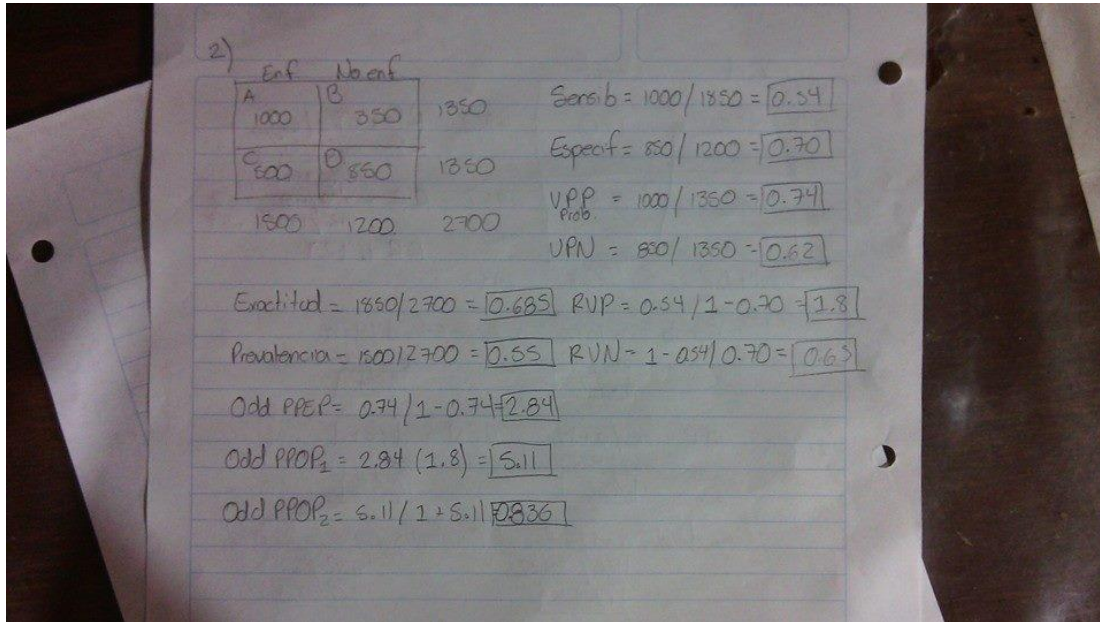 2)
Enf No enf
A 1000 B 350 1350
C 500 D 850 1350
1500 1200 2700
Sensib = 1000 / 1850 = 0.54
Especif = 850 / 1200 = 0.70
VPP = 1000 / 1350 = 0.74
Prob.
VPN = 850 / 1350 = 0.62
Exactitud = 1850/2700 = 0.685 RVP = 0.54 / 1-0.70 = 1.8
Prevalencia = 1500/2700 = 0.55 RVN = 1-0.54/ 0.70 = 0.65
Odd PPEP = 0.74 / 1-0.74 = 2.84
Odd PPOP1 = 2.84 (1.8) = 5.11
Odd PPOP2 = 5.11 / 1+5.11 = 0.836